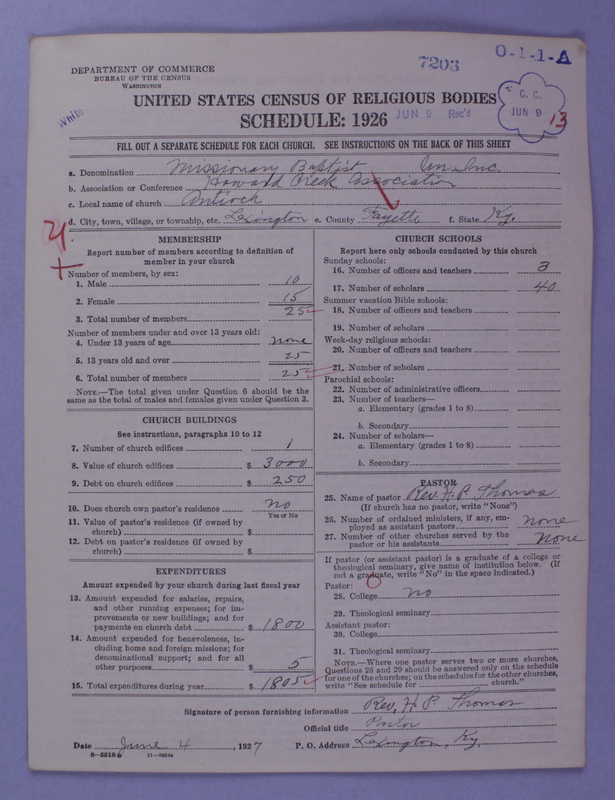 7203
O-1-1-A
DEPARTMENT OF COMMERCE
BUREAU OF THE CENSUS
WASHINGTON
White
UNITED STATES CENSUS OF RELIGIOUS BODIES
SCHEDULE: 1926
JUN 9 Rec'd
C. C.
JUN 9
13
FILL OUT A SEPARATE SCHEDULE FOR EACH CHURCH. SEE INSTRUCTIONS ON THE BACK OF THIS SHEET
a. Denomination Missionary Baptist Un. Inc.
b. Association or Conference Howard Creek Association
c. Local name of church Antioch
d. City, town, village, or township, etc. Lexington e. County Fayette f. State Ky.
MEMBERSHIP
Report number of members according to definition of
member in your church
Number of members, by sex:
1. Male 10
2. Female 15
3. Total number of members 25
Number of members under and over 13 years old:
4. Under 13 years of age none
5. 13 years old and over 25
6. Total number of members 25
NOTE.—The total given under Question 6 should be the
same as the total of males and females given under Question 3.
CHURCH BUILDINGS
See instructions, paragraphs 10 to 12
7. Number of church edifices 1
8. Value of church edifices $ 3000
9. Debt on church edifices $ 250
10. Does church own pastor's residence no
Yes or No
11. Value of pastor's residence (if owned by
church) $
12. Debt on pastor's residence (if owned by
church) $
EXPENDITURES
Amount expended by your church during last fiscal year
13. Amount expended for salaries, repairs,
and other running expenses; for im-
provements or new buildings; and for
payments on church debt $ 1800
14. Amount expended for benevolences, in-
cluding home and foreign missions; for
denominational support; and for all
other purposes $ 5
15. Total expenditures during year $ 1805
CHURCH SCHOOLS
Report here only schools conducted by this church
Sunday schools:
16. Number of officers and teachers 3
17. Number of scholars 40
Summer vacation Bible schools:
18. Number of officers and teachers
19. Number of scholars
Week-day religious schools:
20. Number of officers and teachers
21. Number of scholars
Parochial schools:
22. Number of administrative officers
23. Number of teachers—
a. Elementary (grades 1 to 8)
b. Secondary
24. Number of scholars—
a. Elementary (grades 1 to 8)
b. Secondary
PASTOR
25. Name of pastor Rev. H. P. Thomas
(If church has no pastor, write "None")
26. Number of ordained ministers, if any, em-
ployed as assistant pastors none
27. Number of other churches served by the
pastor or his assistants none
If pastor (or assistant pastor) is a graduate of a college or
theological seminary, give name of institution below. (If
not a graduate, write "No" in the space indicated.)
Pastor:
28. College no
29. Theological seminary
Assistant pastor:
30. College
31. Theological seminary
NOTE.—Where one pastor serves two or more churches,
Questions 28 and 29 should be answered only on the schedule
for one of the churches; on the schedules for the other churches,
write "See schedule for church."
Signature of person furnishing information Rev. H. P. Thomas
Official title Pastor
Date June 4, 1927 P. O. Address Lexington, Ky.